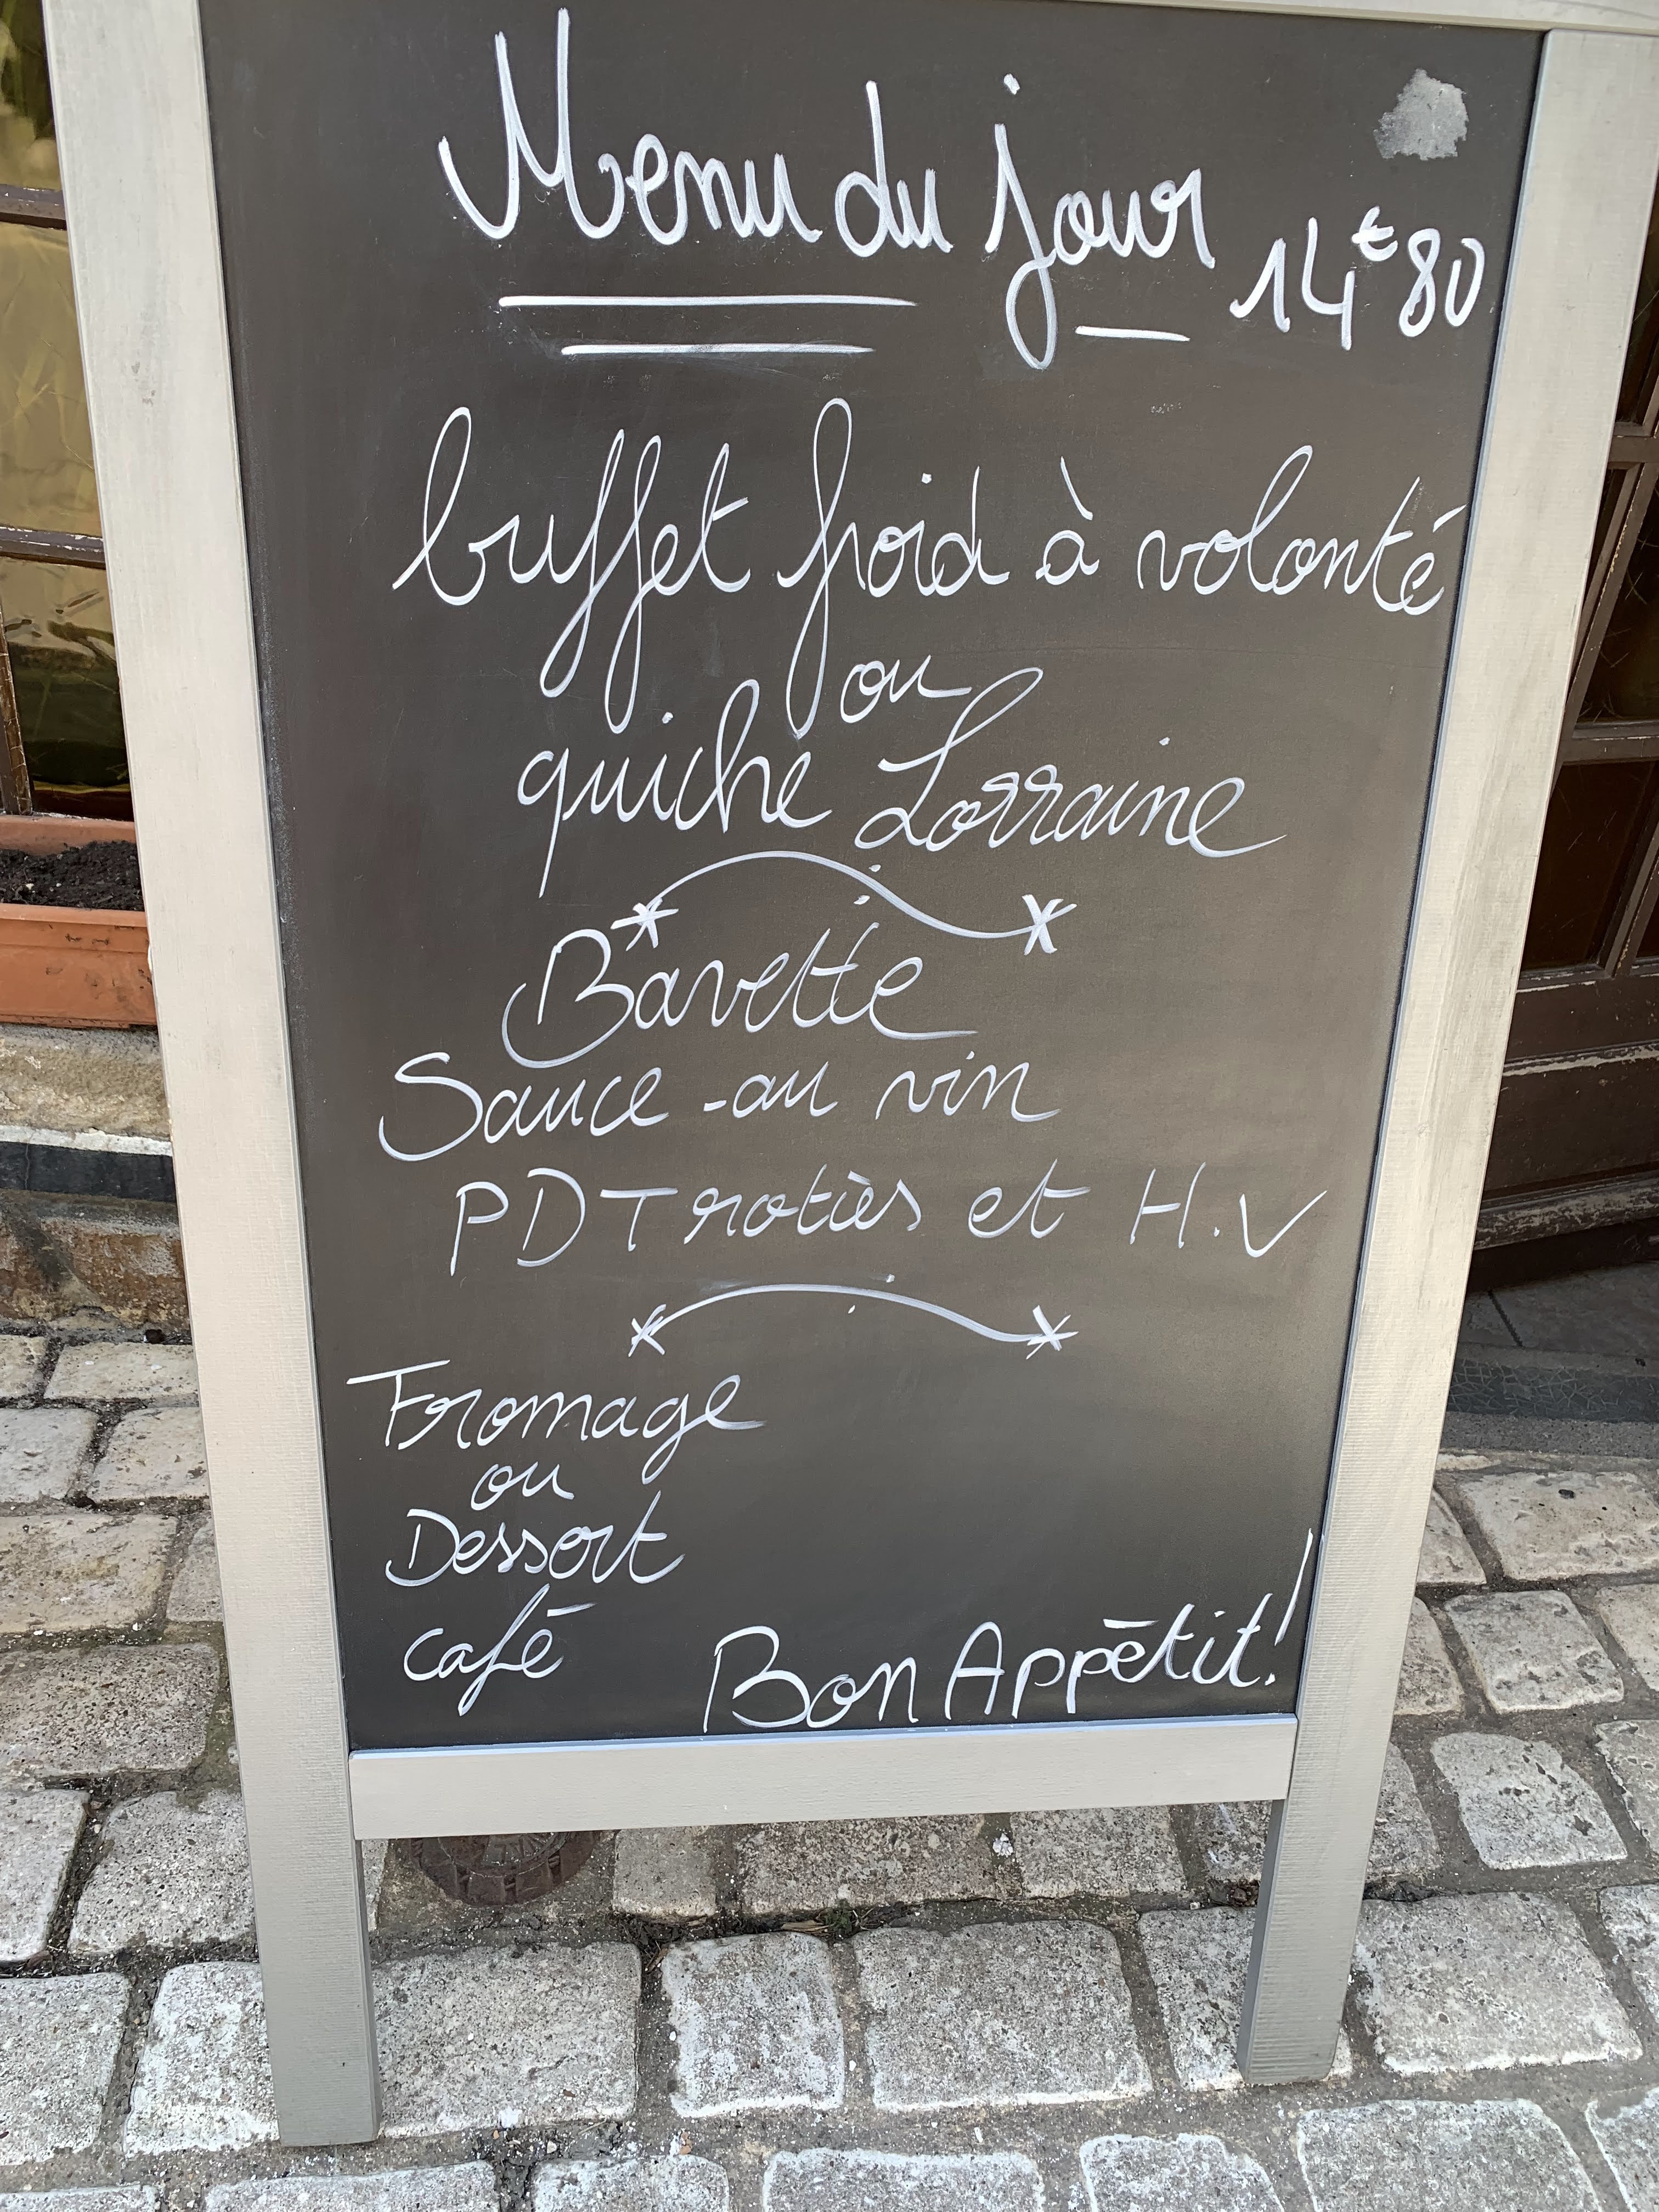 Menu du jour 14€80
buffet froid à volonté
ou
quiche Lorraine
Bavette
Sauce au vin
PDT rotiès et H.V
Fromage
ou
Dessert
café
Bon Appétit!